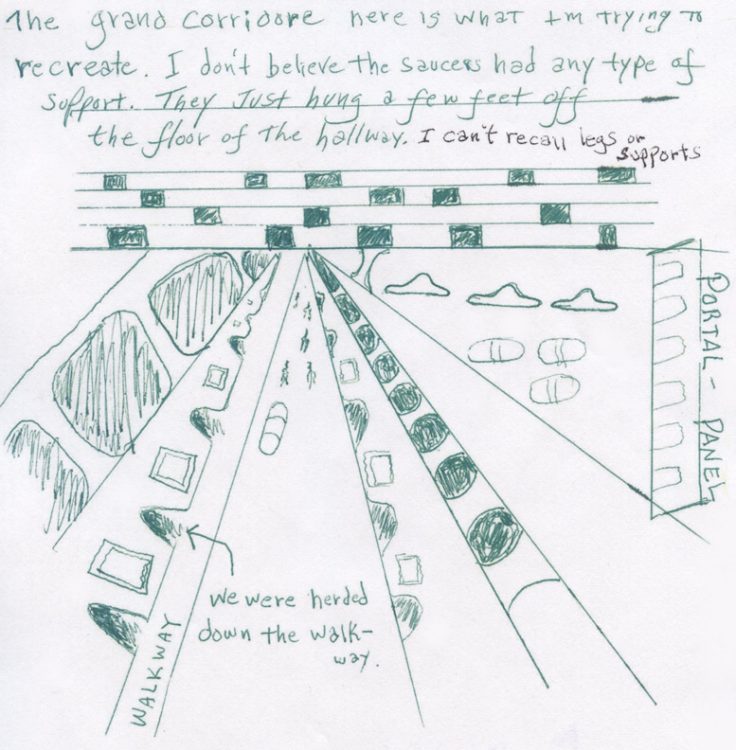 The grand corridore here is what I'm trying to
recreate. I don't believe the saucers had any type of
support. They Just hung a few feet off
the floor of the hallway. I can't recall legs or
supports
PORTAL - PANEL
we were herded
down the walk-
way.
WALKWAY